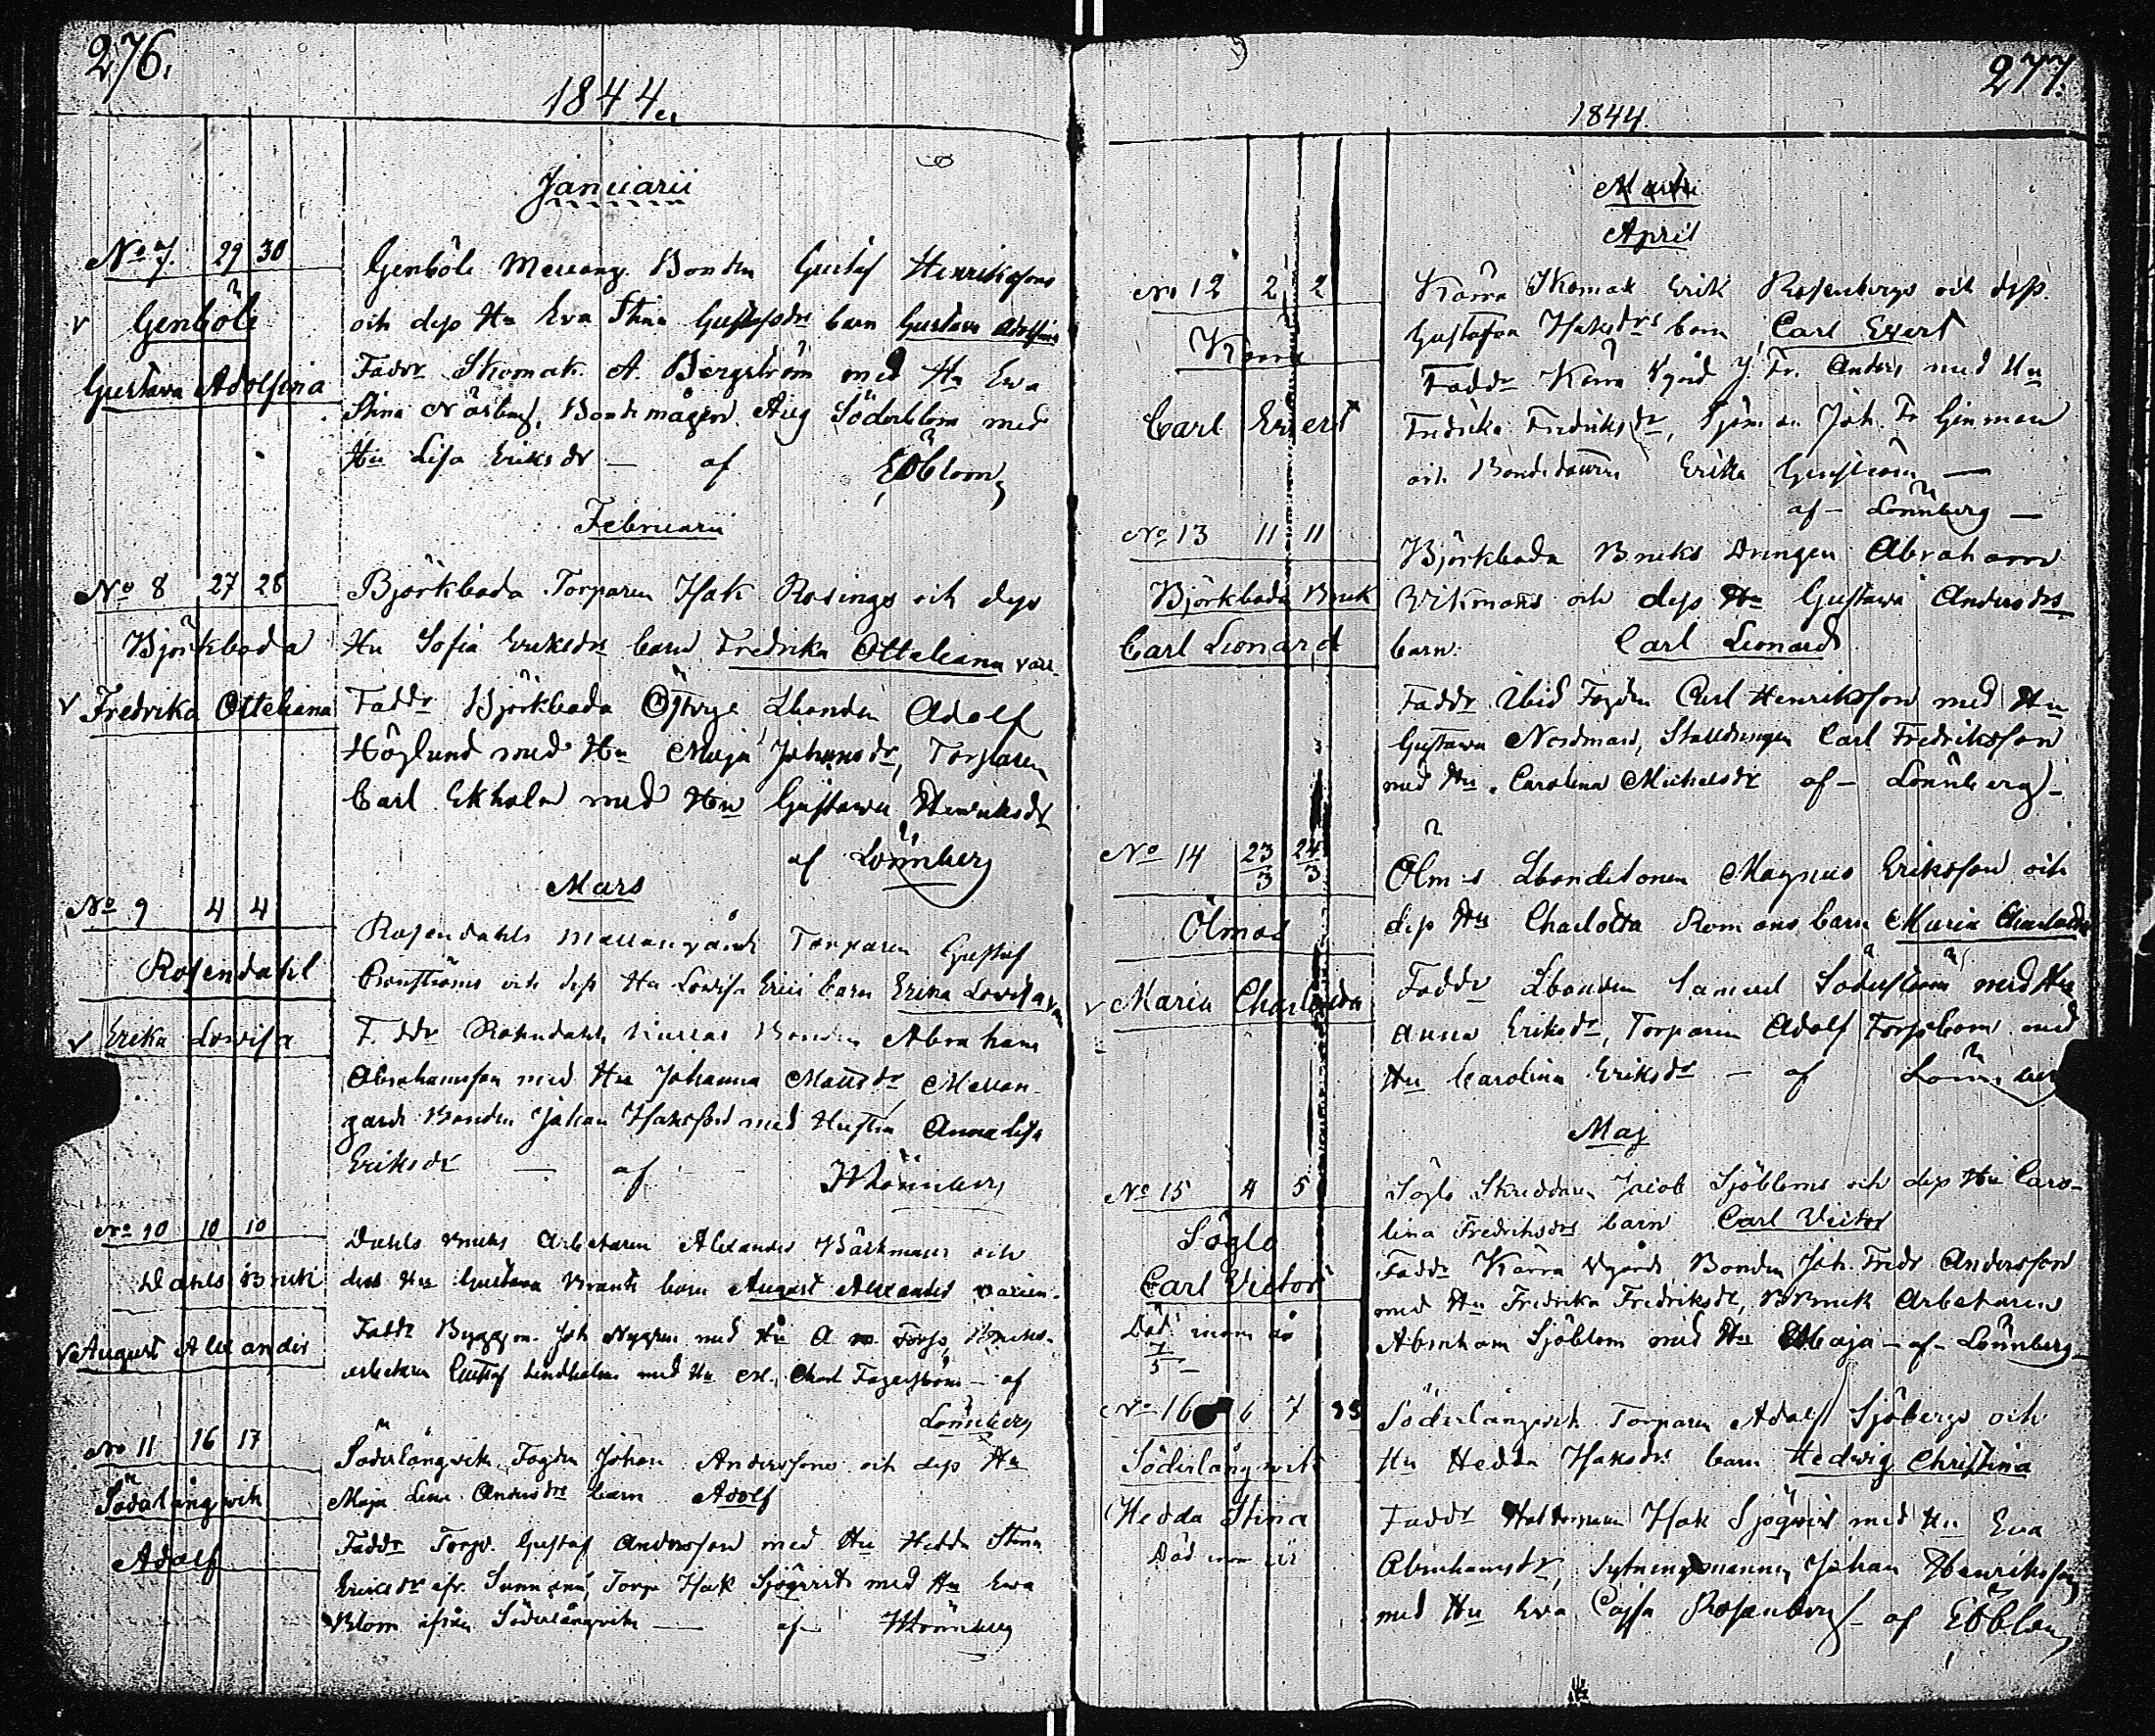 276.
1844.
Januarii
No 7. 29 30
Genböle
Gustava Adolfina
Genböle Bonden Gustaf Henrikssons
och dess Hu Eva Stina barn Gustava Adolfina
Faddr Skomak. A. Bergström med Hu Ewa
Stina Bondemågen Aug Söderblom med
Hu Lisa Eriksdr — af
Februarii
No 8 27 28
Björkboda
Fredrika Otteliana
Björkboda Torparen Isak Rosings och dess
Hu Sofia Eriksdrs barn Fredrika Otteliana
Faddr Björkboda Lbonden Adolf
Höglund med Hu Maja Johansdr, Torparen
Carl Ekholm med Hu Gustawa Henriksdr
af Lönnberg
Mars
No 9 4 4
Rosendahl
Erika Lovisa
Rosendahls Mellangårds Torparen Gustaf
och dess Hu Lovisa barn Erika Lovisa
Faddr Rosendahls Bonden Abraham
Abrahamsson med Hu Johanna Mattsdr Mellan-
gårds Bonden Johan Isaksson med Hustru Anna Lisa
Eriksdr — af — Lönnberg
No 10 10 10
Dahls Bruk
August Alexander
Dahls Bruks Arbetaren Alexander och
dess Hu Gustava barn August Alexander
Faddr Byggm. Joh Nygren med Hu Bruks-
arbetaren Gustaf Lindholm med Hu Fagerström — af
Lönnberg
No 11 16 17
Söderlångwik
Adolf
Söderlångwik Fogden Johan Anderssons och dess Hu
Maja Lena Andersdrs barn Adolf
Faddr Torp. Gustaf Andersson med Hu Hedda Stina
Ericsdr Torp Isak Sjöqvist med Hu Ewa
Blom ifrån Söderlångwik — af Lönnberg
277.
1844.
April
No 12 2 2
Kärra
Carl Evert
Kärra Skomak Erik Rosenbergs och dess
Gustafva Isaksdrs barn Carl Evert
Faddr Kärra Anders med Hu
Fredrika Fredriksdr, Joh. Fr Ginman
och Erika —
af — Lönnberg —
No 13 11 11
Björkboda Bruk
Carl Leonard
Björkboda Bruks Drengen Abraham
Wikmans och dess Hu Gustawa Andersdrs
barn. Carl Leonard
Faddr Ibid Fogden Carl Henriksson med Hu
Gustawa Nordman, Stalldrengen Carl Fredriksson
med Hu Carolina Michelsdr af — Lönnberg —
No 14 23/3 24/3
Ölmos
Maria Charlotta
Lbondesonen Magnus Eriksson och
dess Hu Charlotta Romans barn Maria Charlotta
Faddr Lbonden Samuel Söderström med Hu
Anna Eriksdr, Torparen Adolf Forsblom med
Hu Carolina Eriksdr — af Lönnberg
Maj
No 15 4 5
Söglö
Carl Victor
Död inom år
7/5
Söglö Skreddaren Jacob Sjöbloms och dess Hu Caro-
lina Fredriksdrs barn Carl Victor
Faddr Kärra Bonden Joh. Fredr Andersson
med Hu Fredrika Fredriksdr, Bruk Arbetaren
Abraham Sjöblom med Hu Maja — af — Lönnberg —
No 16 6 7
Söderlångwik
Hedda Stina
Död inom år
Söderlångwik Torparen Adolf Sjöbergs och
Hu Hedda Isaksdrs barn Hedwig Christina
Faddr Isak Sjöqvist med Hu Eva
Abrahamsdr, Sytningsmannen Johan Henriksson
med Hu Ewa Cajsa Rosenberg — af